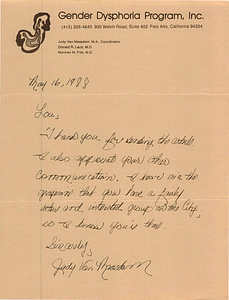 Gender Dysphoria Program, Inc.
(415) 326-4645 900 Welch Road, Suite 402 Palo Alto, California 94304
Judy Van Maasdam, M.A., Coordinator
Donald R. Laub, M.D.
Norman M. Fisk, M.D.
May 16, 1988
Lou,
Thank you for sending the article.
I also appreciate your other
communication. It gave me the
that you have a fairly
active and interested group in the City,
so I know you're
Sincerely,
Judy Van Maasdam